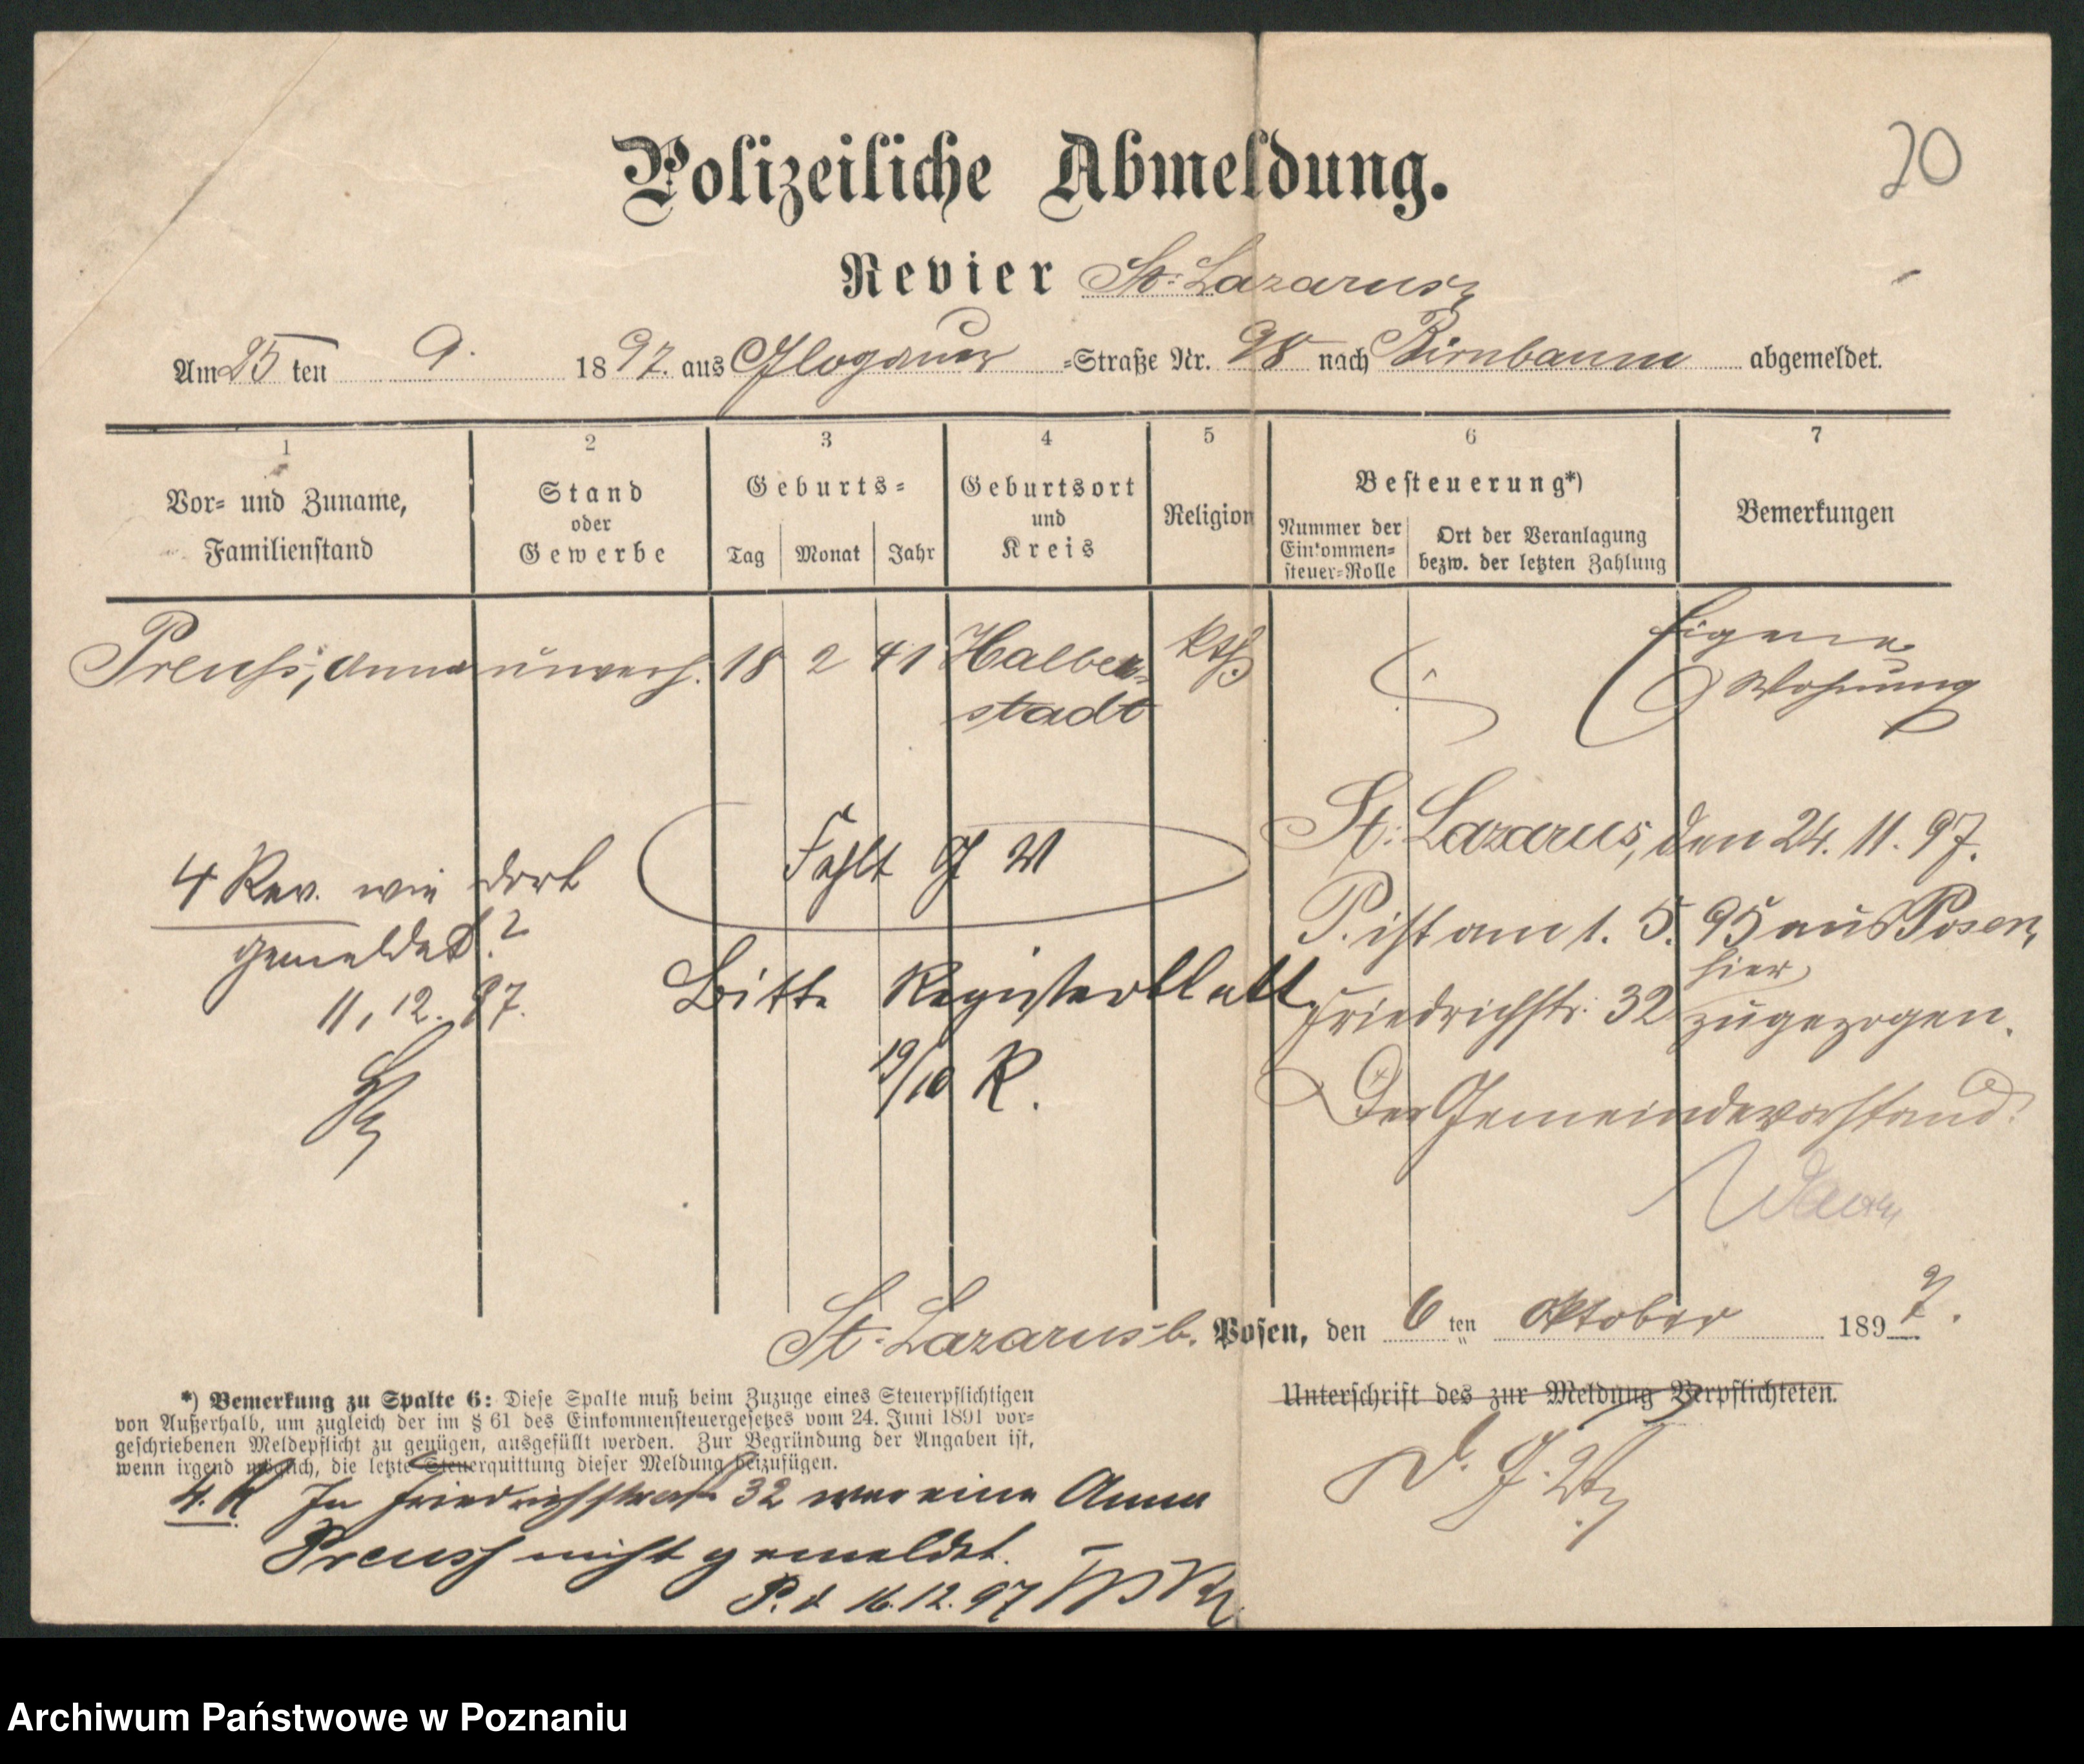 20
Polizeiliche Abmeldung.
Revier St. Lazarus
Am 25 ten 9. 1897. aus Glogauer -Straße Nr. 98 nach Birnbaum abgemeldet.
1 2 3 4 5 6 7
Vor- und Zuname, Familienstand
Stand oder Gewerbe
Geburts-
Tag Monat Jahr
Geburtsort und Kreis
Religion
Besteuerung*)
Nummer der Einkommen-steuer-Rolle
Ort der Veranlagung bezw. der letzten Zahlung
Bemerkungen
Preuß, Anna unvereh. 18 2 41 Halber- kth.
stadt
Eigene
Wohnung
Fehlt
4 Rev. wie dort
gemeldet?
11. 12. 97.
Bitte Registerblatt
19/10 R.
St. Lazarus, den 24. 11. 97.
P. ist am 1. 5. 95 aus Posen,
Friedrichstr. 32 hier zugezogen.
Der Gemeindevorstand.
St. Lazarus b. Posen, den 6 ten Oktober 1897.
Unterschrift des zur Meldung Verpflichteten.
*) Bemerkung zu Spalte 6: Diese Spalte muß beim Zuzuge eines Steuerpflichtigen
von Außerhalb, um zugleich der im § 61 des Einkommensteuergesetzes vom 24. Juni 1891 vor-
geschriebenen Meldepflicht zu genügen, ausgefüllt werden. Zur Begründung der Angaben ist,
wenn irgend möglich, die letzte Steuerquittung dieser Meldung beizufügen.
4. R In Friedrichstraße 32 war eine Anna
Preuss nicht gemeldet.
P. d 16.12.97
Archiwum Państwowe w Poznaniu